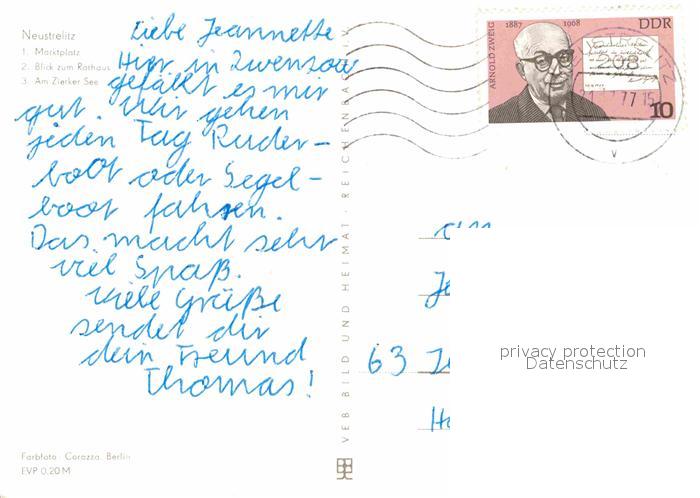 Neustrelitz
1. Marktplatz
2. Blick zum Rathaus
3. Am Zierker See
Liebe Jeannette
Hier in Zwenzow
gefällt es mir
gut. Wir gehen
jeden Tag Ruder-
boot oder Segel-
boot fahren.
Das macht sehr
viel Spaß.
Viele Grüße
sendet dir
dein Freund
Thomas!
Farbfoto: Corazza, Berlin
EVP 0,20 M
VEB BILD UND HEIMAT · REICHENBACH
ARNOLD ZWEIG
1887 1968
DDR
10
63
privacy protection
Datenschutz